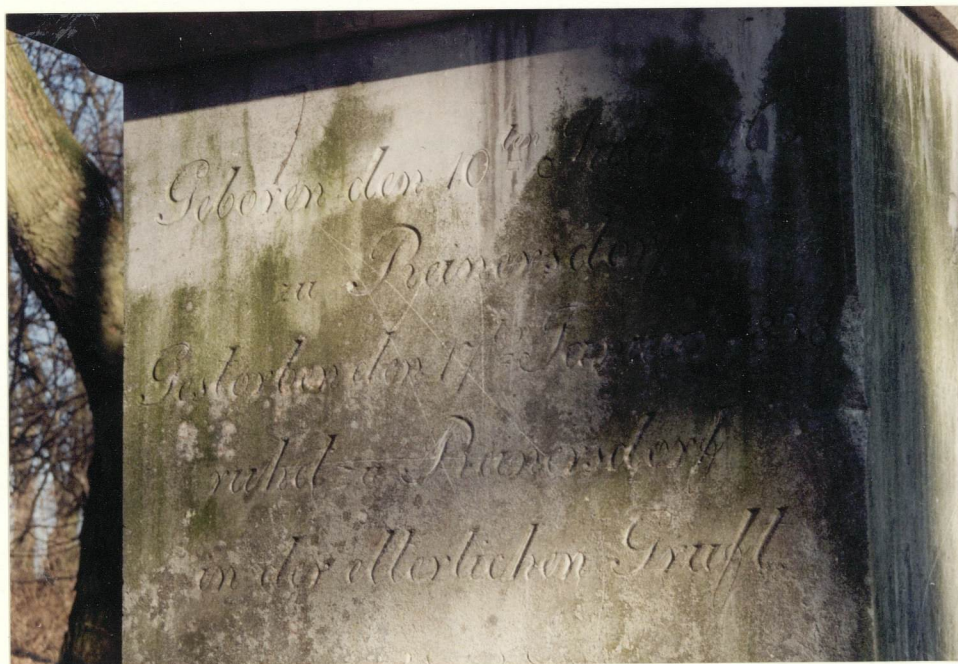 Geboren den 10ten
zu Reinersdorf
Gestorben den 17ten Januar
ruhet zu Reinersdorf
in der elterlichen Gruft.